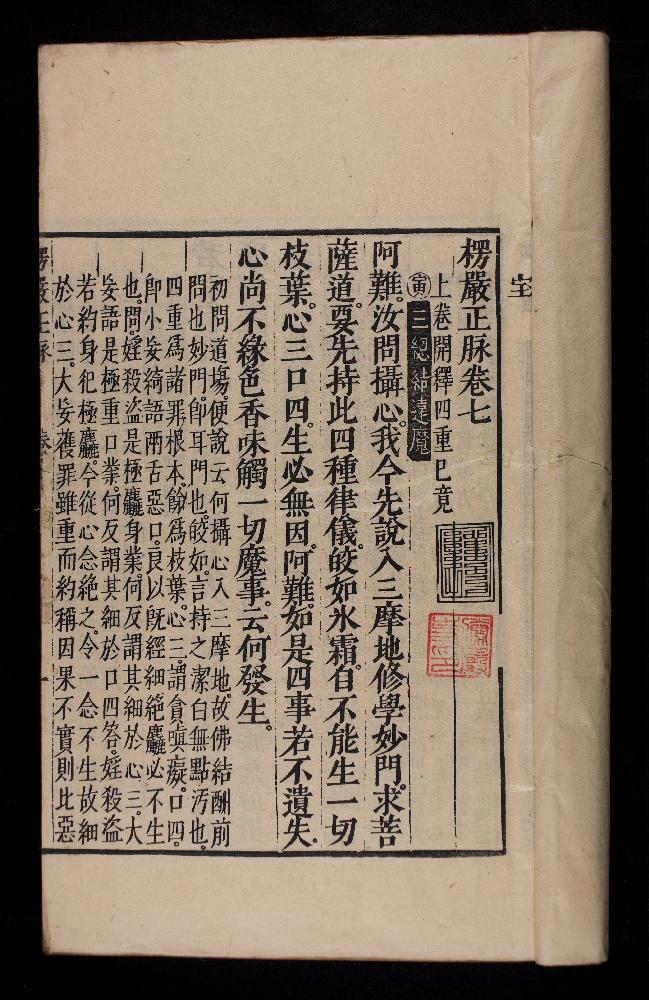 楞嚴正脉卷七
上卷開釋四重已竟
寅三總結遠魔
阿難。汝問攝心。我今先說入三摩地修學妙門。求菩
薩道。要先持此四種律儀。皎如氷霜。自不能生一切
枝葉。心三口四。生必無因。阿難。如是四事若不遺失。
心尚不緣色香味觸一切魔事。云何發生。
初問道場。便說云何攝心入三摩地。故佛結酬前
問也。妙門。卽耳門也。皎如。言持之潔白無點汚也。
四重爲諸罪根本。餘爲枝葉。心三。謂貪嗔癡。口四。
卽小妄綺語兩舌惡口。良以旣經細絕麤必不生
也。問。婬殺盜是極麤身業。何反謂其細於心三。大
妄語是極重口業。何反謂其細於口四。答。婬殺盜
若約身犯極麤。今從心念絕之。令一念不生故細
於心三。大妄獲罪雖重而約稱因果不實則比惡
楞嚴正脉
一